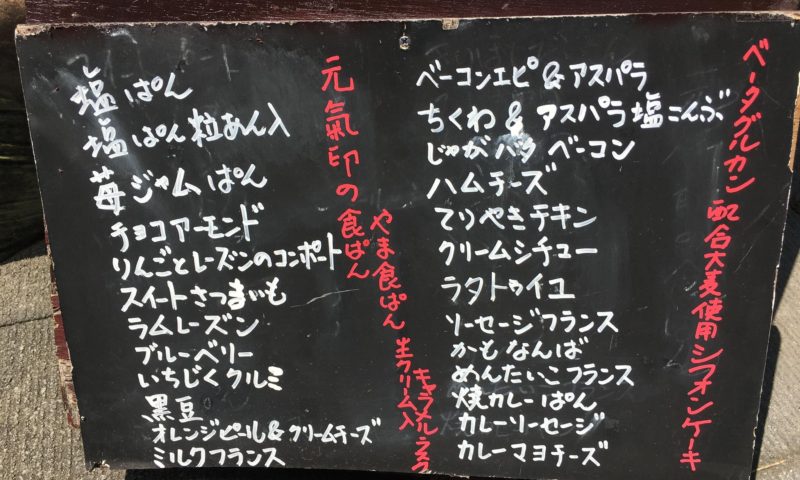 塩ぱん
塩ぱん粒あん入
苺ジャムぱん
チョコアーモンド
りんごとレーズンのコンポート
スイートさつまいも
ラムレーズン
ブルーベリー
いちじくクルミ
黒豆
オレンジピール&クリームチーズ
ミルクフランス
元氣印の食ぱん
やま食ぱん 生クリーム入
キャラメルラスク
ベーコンエピ&アスパラ
ちくわ&アスパラ塩こんぶ
じゃがバタベーコン
ハムチーズ
てりやきチキン
クリームシチュー
ラタトゥイユ
ソーセージフランス
かもなんば
めんたいこフランス
焼カレーぱん
カレーソーセージ
カレーマヨチーズ
ベータグルカン配合大麦使用シフォンケーキ